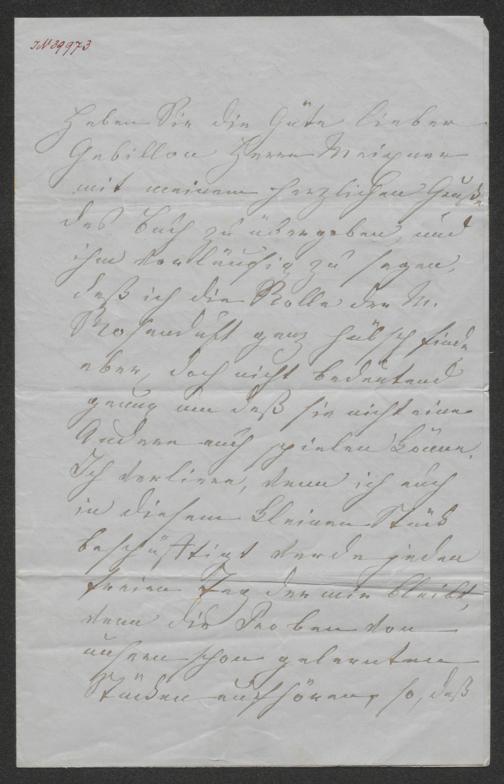 IN 39973
Haben Sie die Güte lieber
Gabillon Herrn Meixner
mit meinem herzlichen Gruße
das Buch zu übergeben, und
ihm vorläufig zu sagen,
daß ich die Rolle der M.
Rosenduft ganz hübsch finde
aber, doch nicht bedeutend
genug um daß sie nicht eine
Andere auch spielen könne.
Ich verliere, wenn ich auch
in diesem kleinen Stück
beschäftigt werde jeden
freien Tag der mir bleibt,
wenn die Proben von
unsern schon gelernten
Stücken aufhören, so, daß